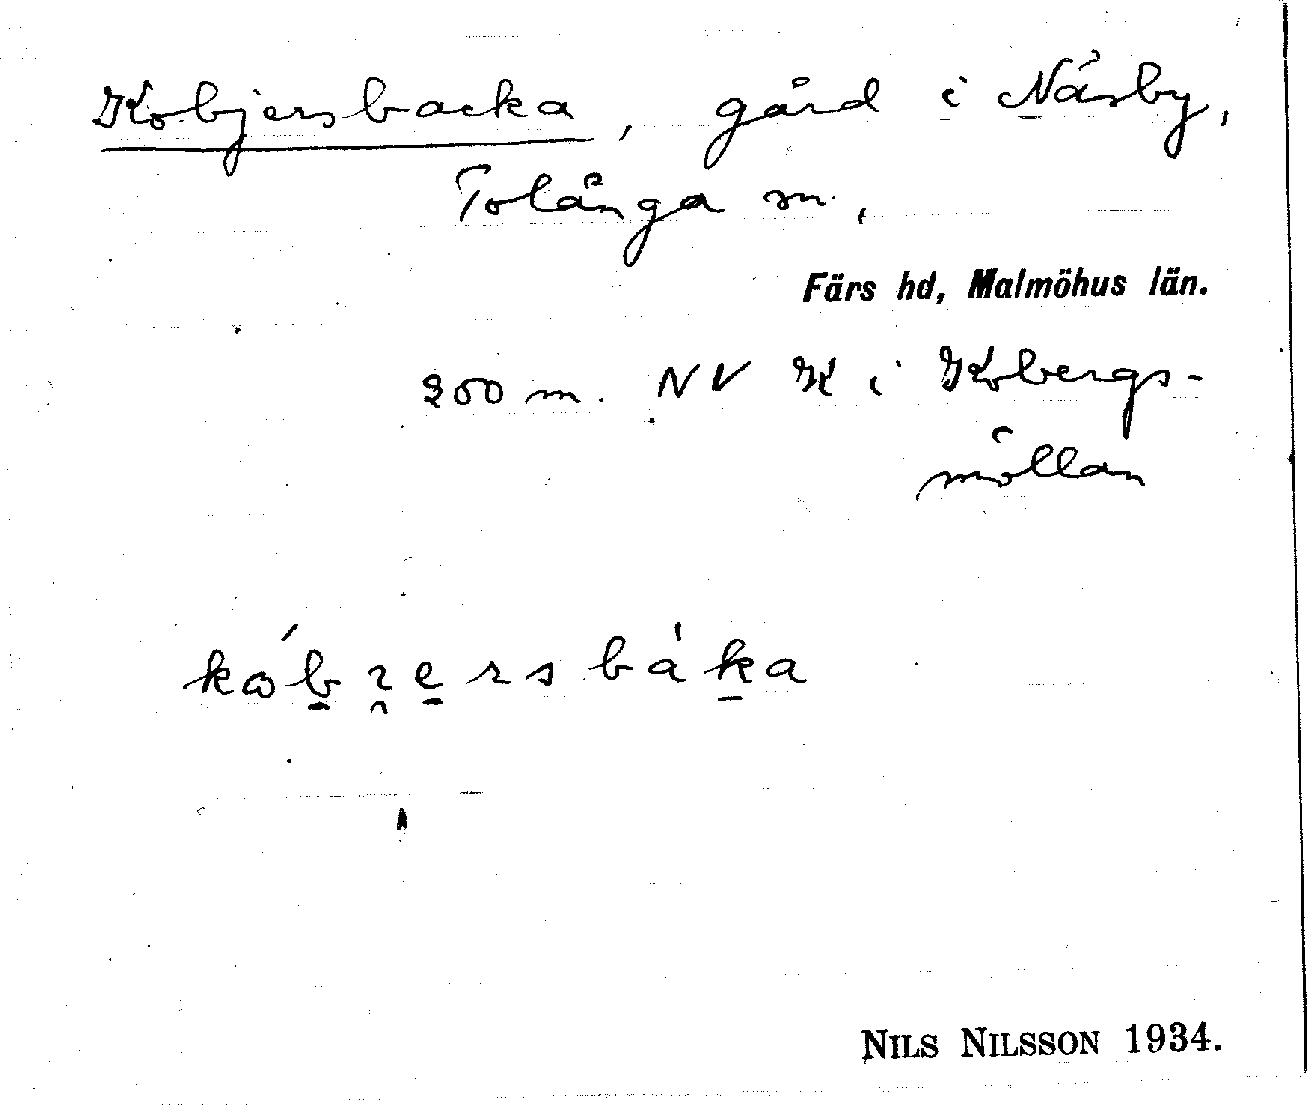 Kobjersbacka, gård i Näsby,
Tolånga sn.,
Färs hd, Malmöhus län.
200 m. NV K i Kobergs-
möllan
kób̠ı̯e̠rsbàk̠a
NILS NILSSON 1934.